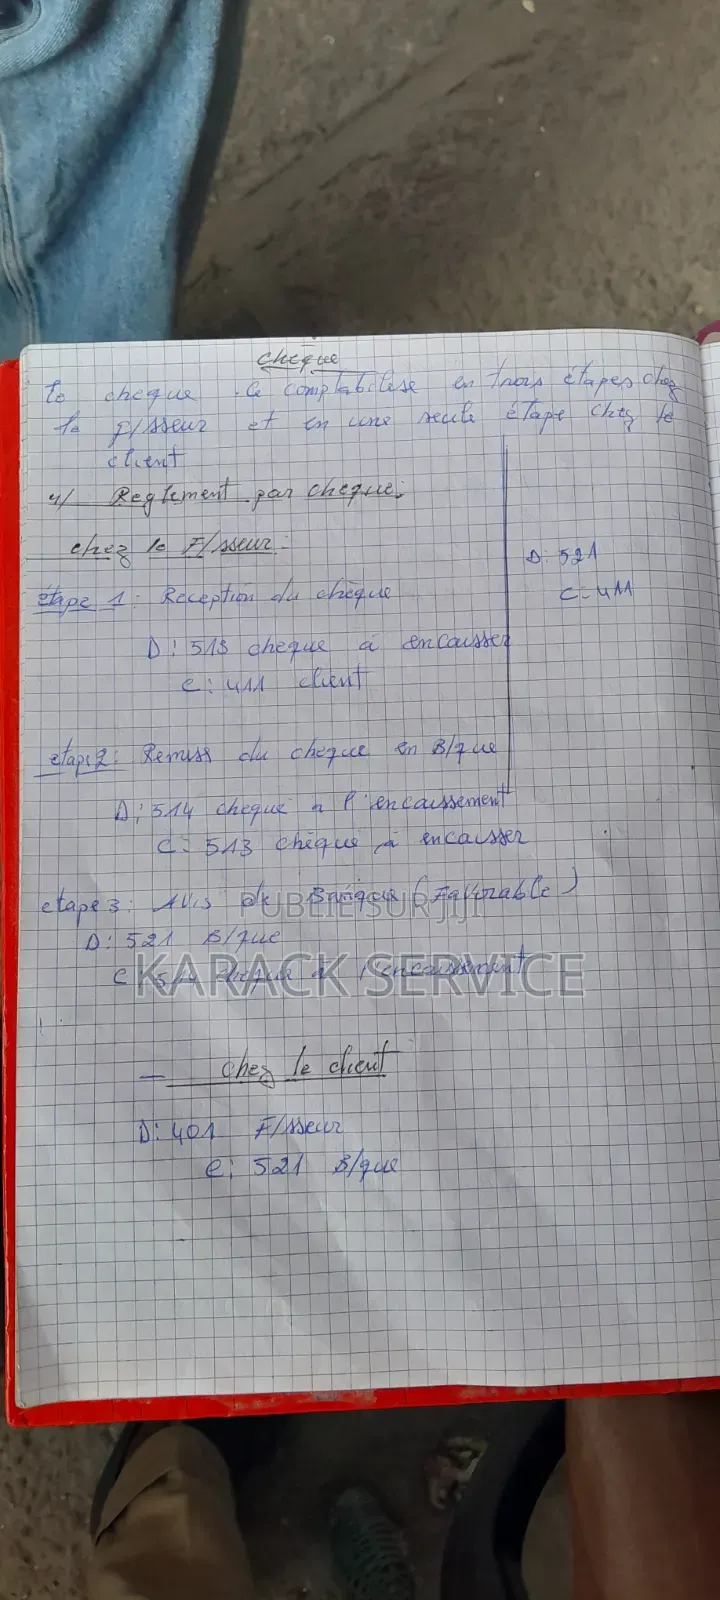 chèque
Le chèque se comptabilise en trois étapes chez
le F/sseur et en une seule étape chez le
client
4/ Reglement par cheque:
chez le F/sseur:
étape 1: Reception du chèque
D: 513 cheque à encaisser
C: 411 client
D: 521
C: 411
etape2: Remiss du cheque en B/que
D: 514 cheque a l'encaissement
C: 513 chèque à encaisser
etape3: Avis de Banque (Favorable)
PUBLIÉ SUR JIJI
D: 521 B/que
C 514 cheque à l'encaissement
KARACK SERVICE
— chez le client
D: 401 F/sseur
C: 521 B/que